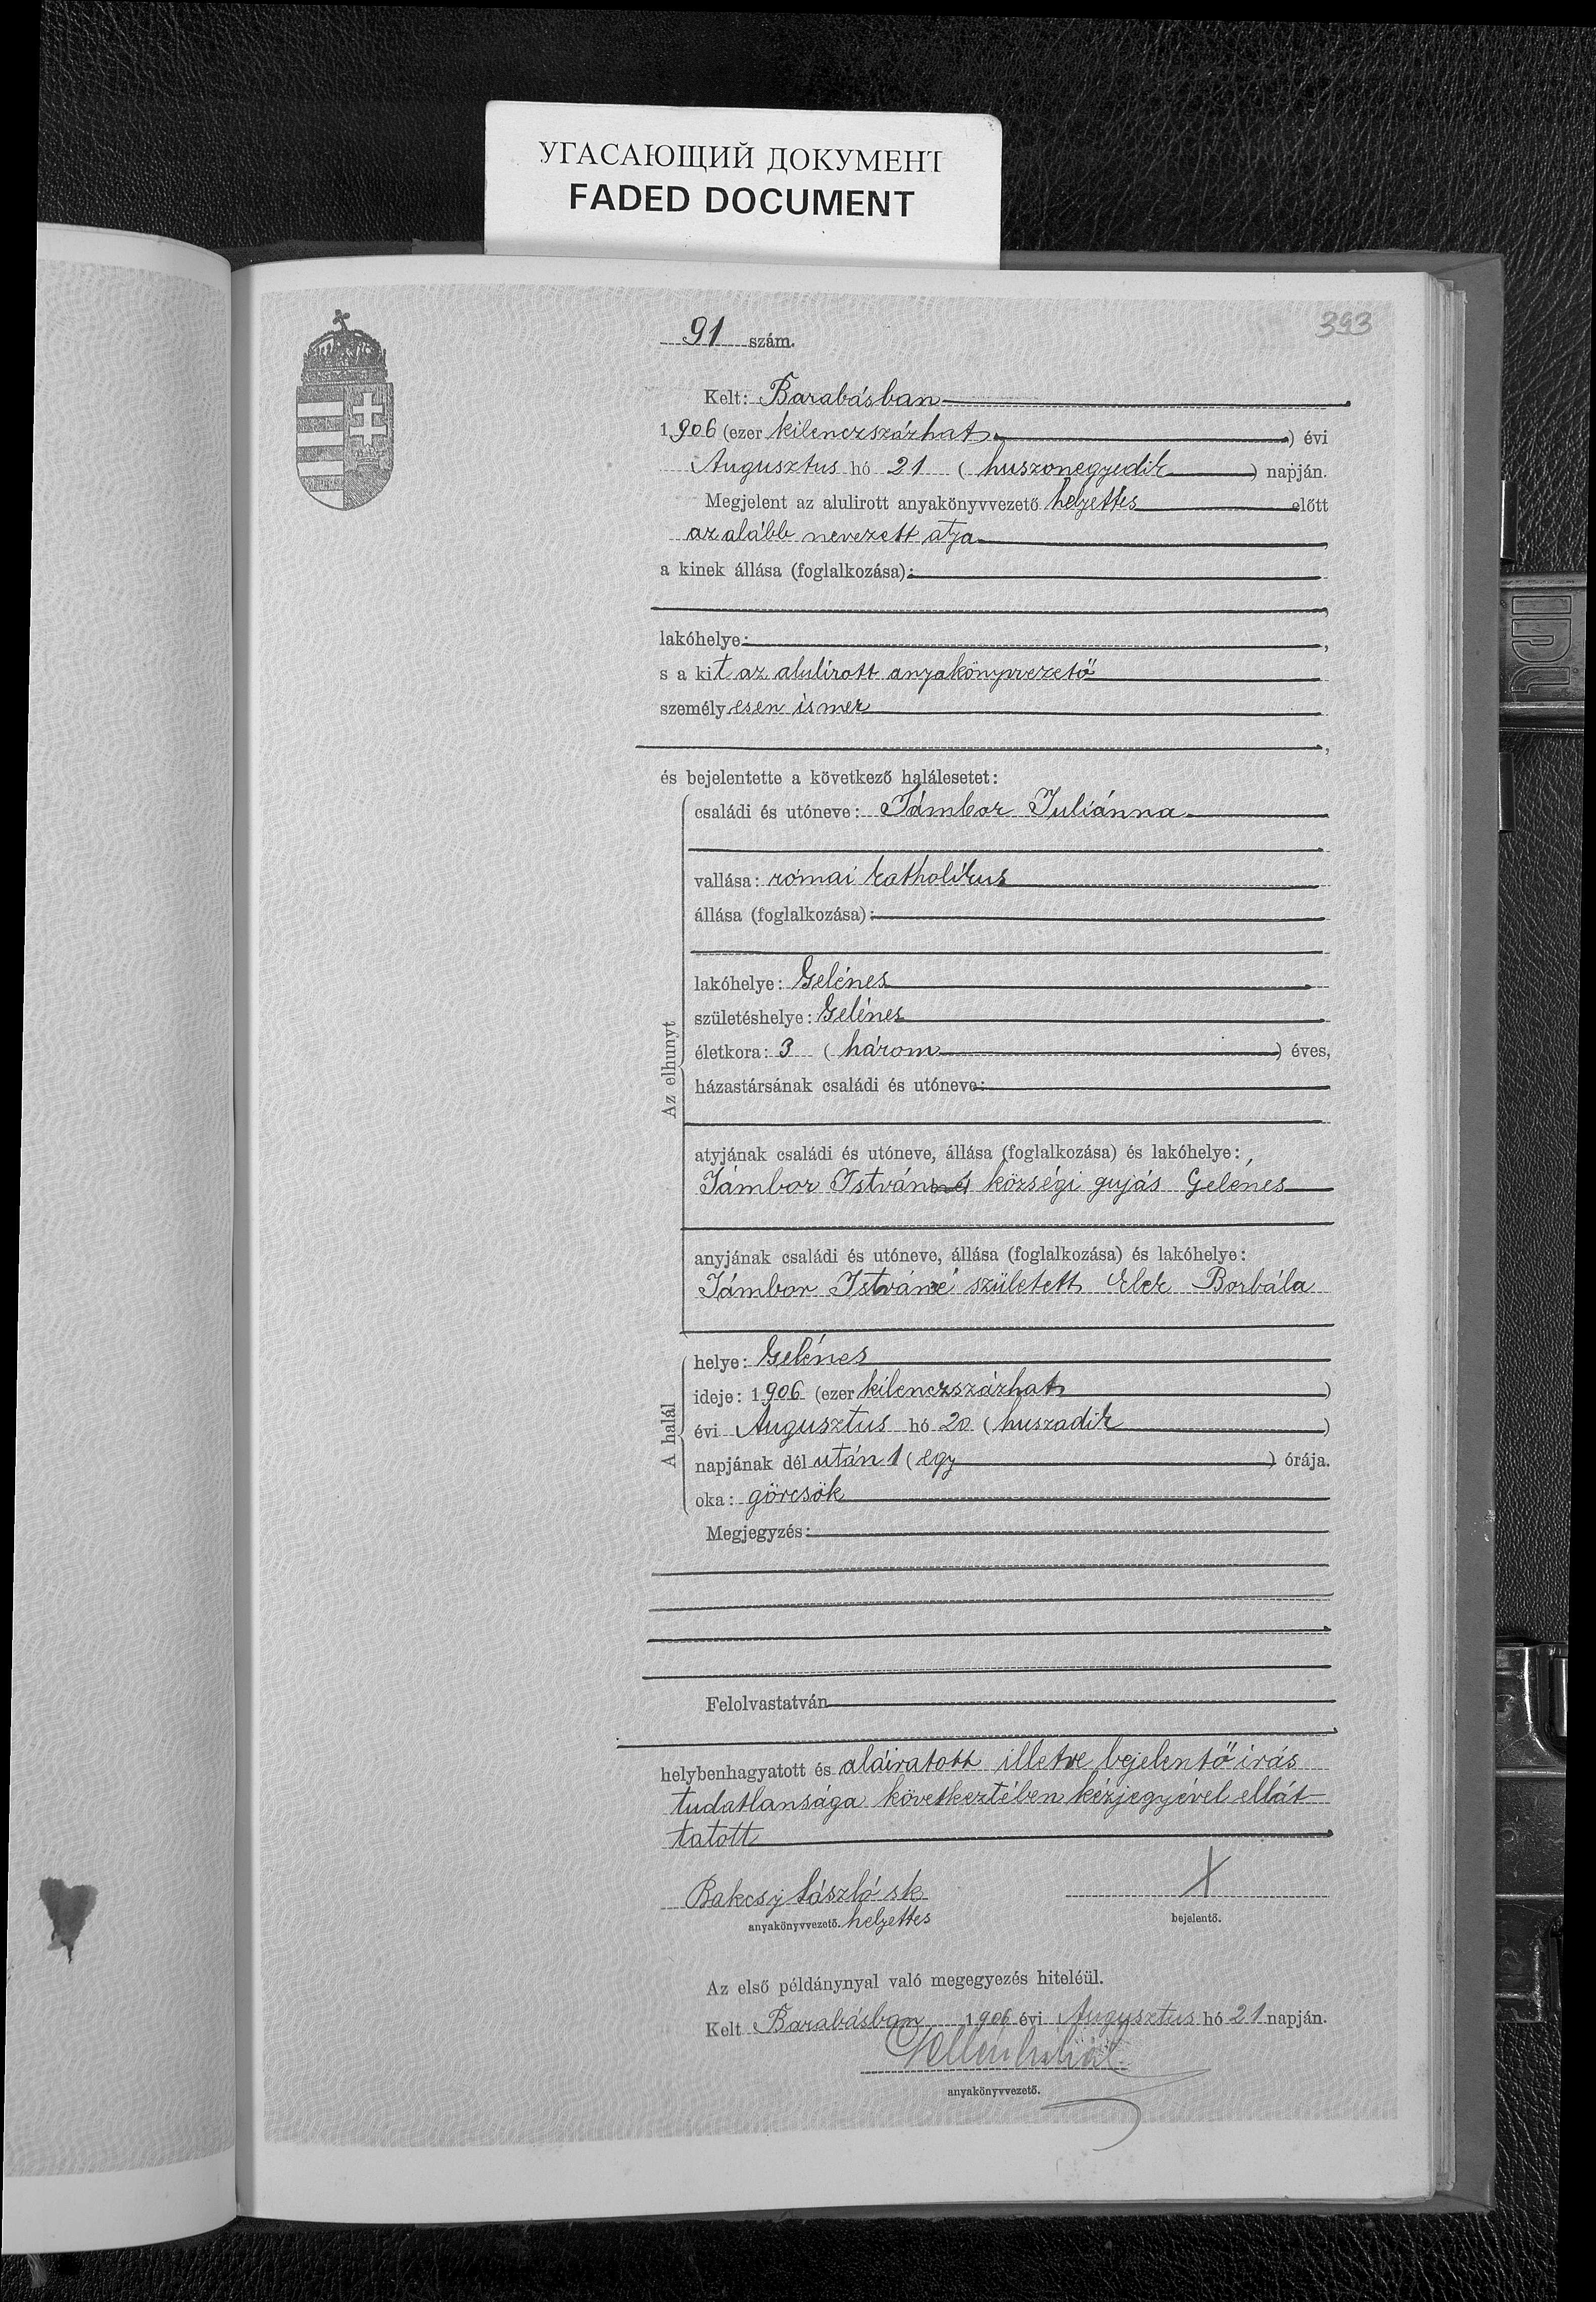 УГАСАЮЩИЙ ДОКУМЕНТ
FADED DOCUMENT
393
91 szám.
Kelt: Barabásban
1906 (ezer kilenczszázhat) évi
Augusztus hó 21 (huszonegyedik) napján.
Megjelent az alulirott anyakönyvvezető helyettes előtt
az alább nevezett atja
a kinek állása (foglalkozása):
lakóhelye:
s a kit az alulirott anyakönyvvezető
személyesen ismer
és bejelentette a következő halálesetet:
Az elhunyt
családi és utóneve: Jámbor Juliánna
vallása: római katholikus
állása (foglalkozása):
lakóhelye: Gelénes
születéshelye: Gelénes
életkora: 3 (három) éves,
házastársának családi és utóneve:
atyjának családi és utóneve, állása (foglalkozása) és lakóhelye:
Jámbor István községi gujás Gelénes
anyjának családi és utóneve, állása (foglalkozása) és lakóhelye:
Jámbor Istváné született Elek Borbála
A halál
helye: Gelénes
ideje: 1906 (ezer kilenczszázhat)
évi Augusztus hó 20 (huszadik)
napjának dél után 1 (egy) órája.
oka: görcsök
Megjegyzés:
Felolvastatván
helybenhagyatott és aláiratott illetve bejelentő irás
tudatlansága következtében kézjegyével ellát-
tatott
Bakcsy László sk X
anyakönyvvezető. helyettes bejelentő.
Az első példánynyal való megegyezés hiteléül.
Kelt Barabásban 1906 évi Augusztus hó 21 napján.
anyakönyvvezető.